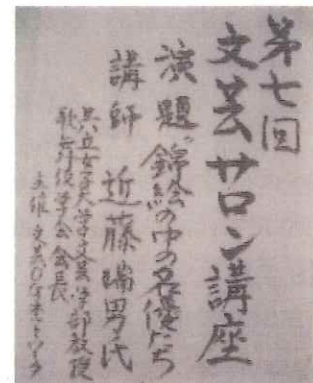 第七回
文芸サロン講座
演題“錦絵の中の名優たち
講師 近藤瑞男氏
共立女子大学文芸学部教授
歌舞伎学会会長
主催 文芸ひなネットワーク